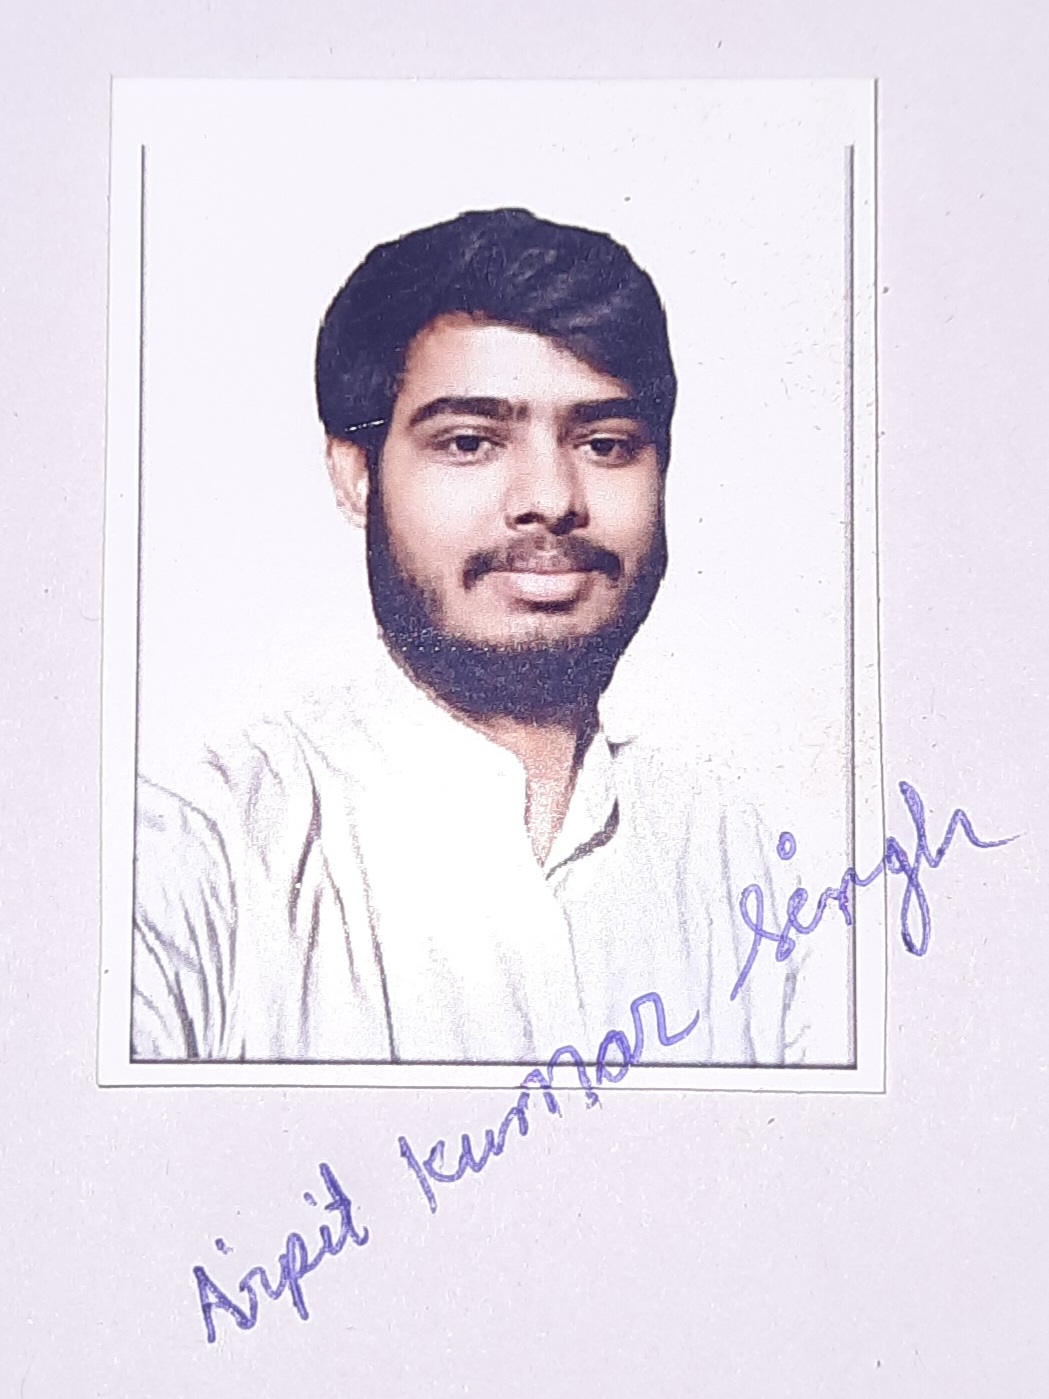 Arpit Kumar Singh